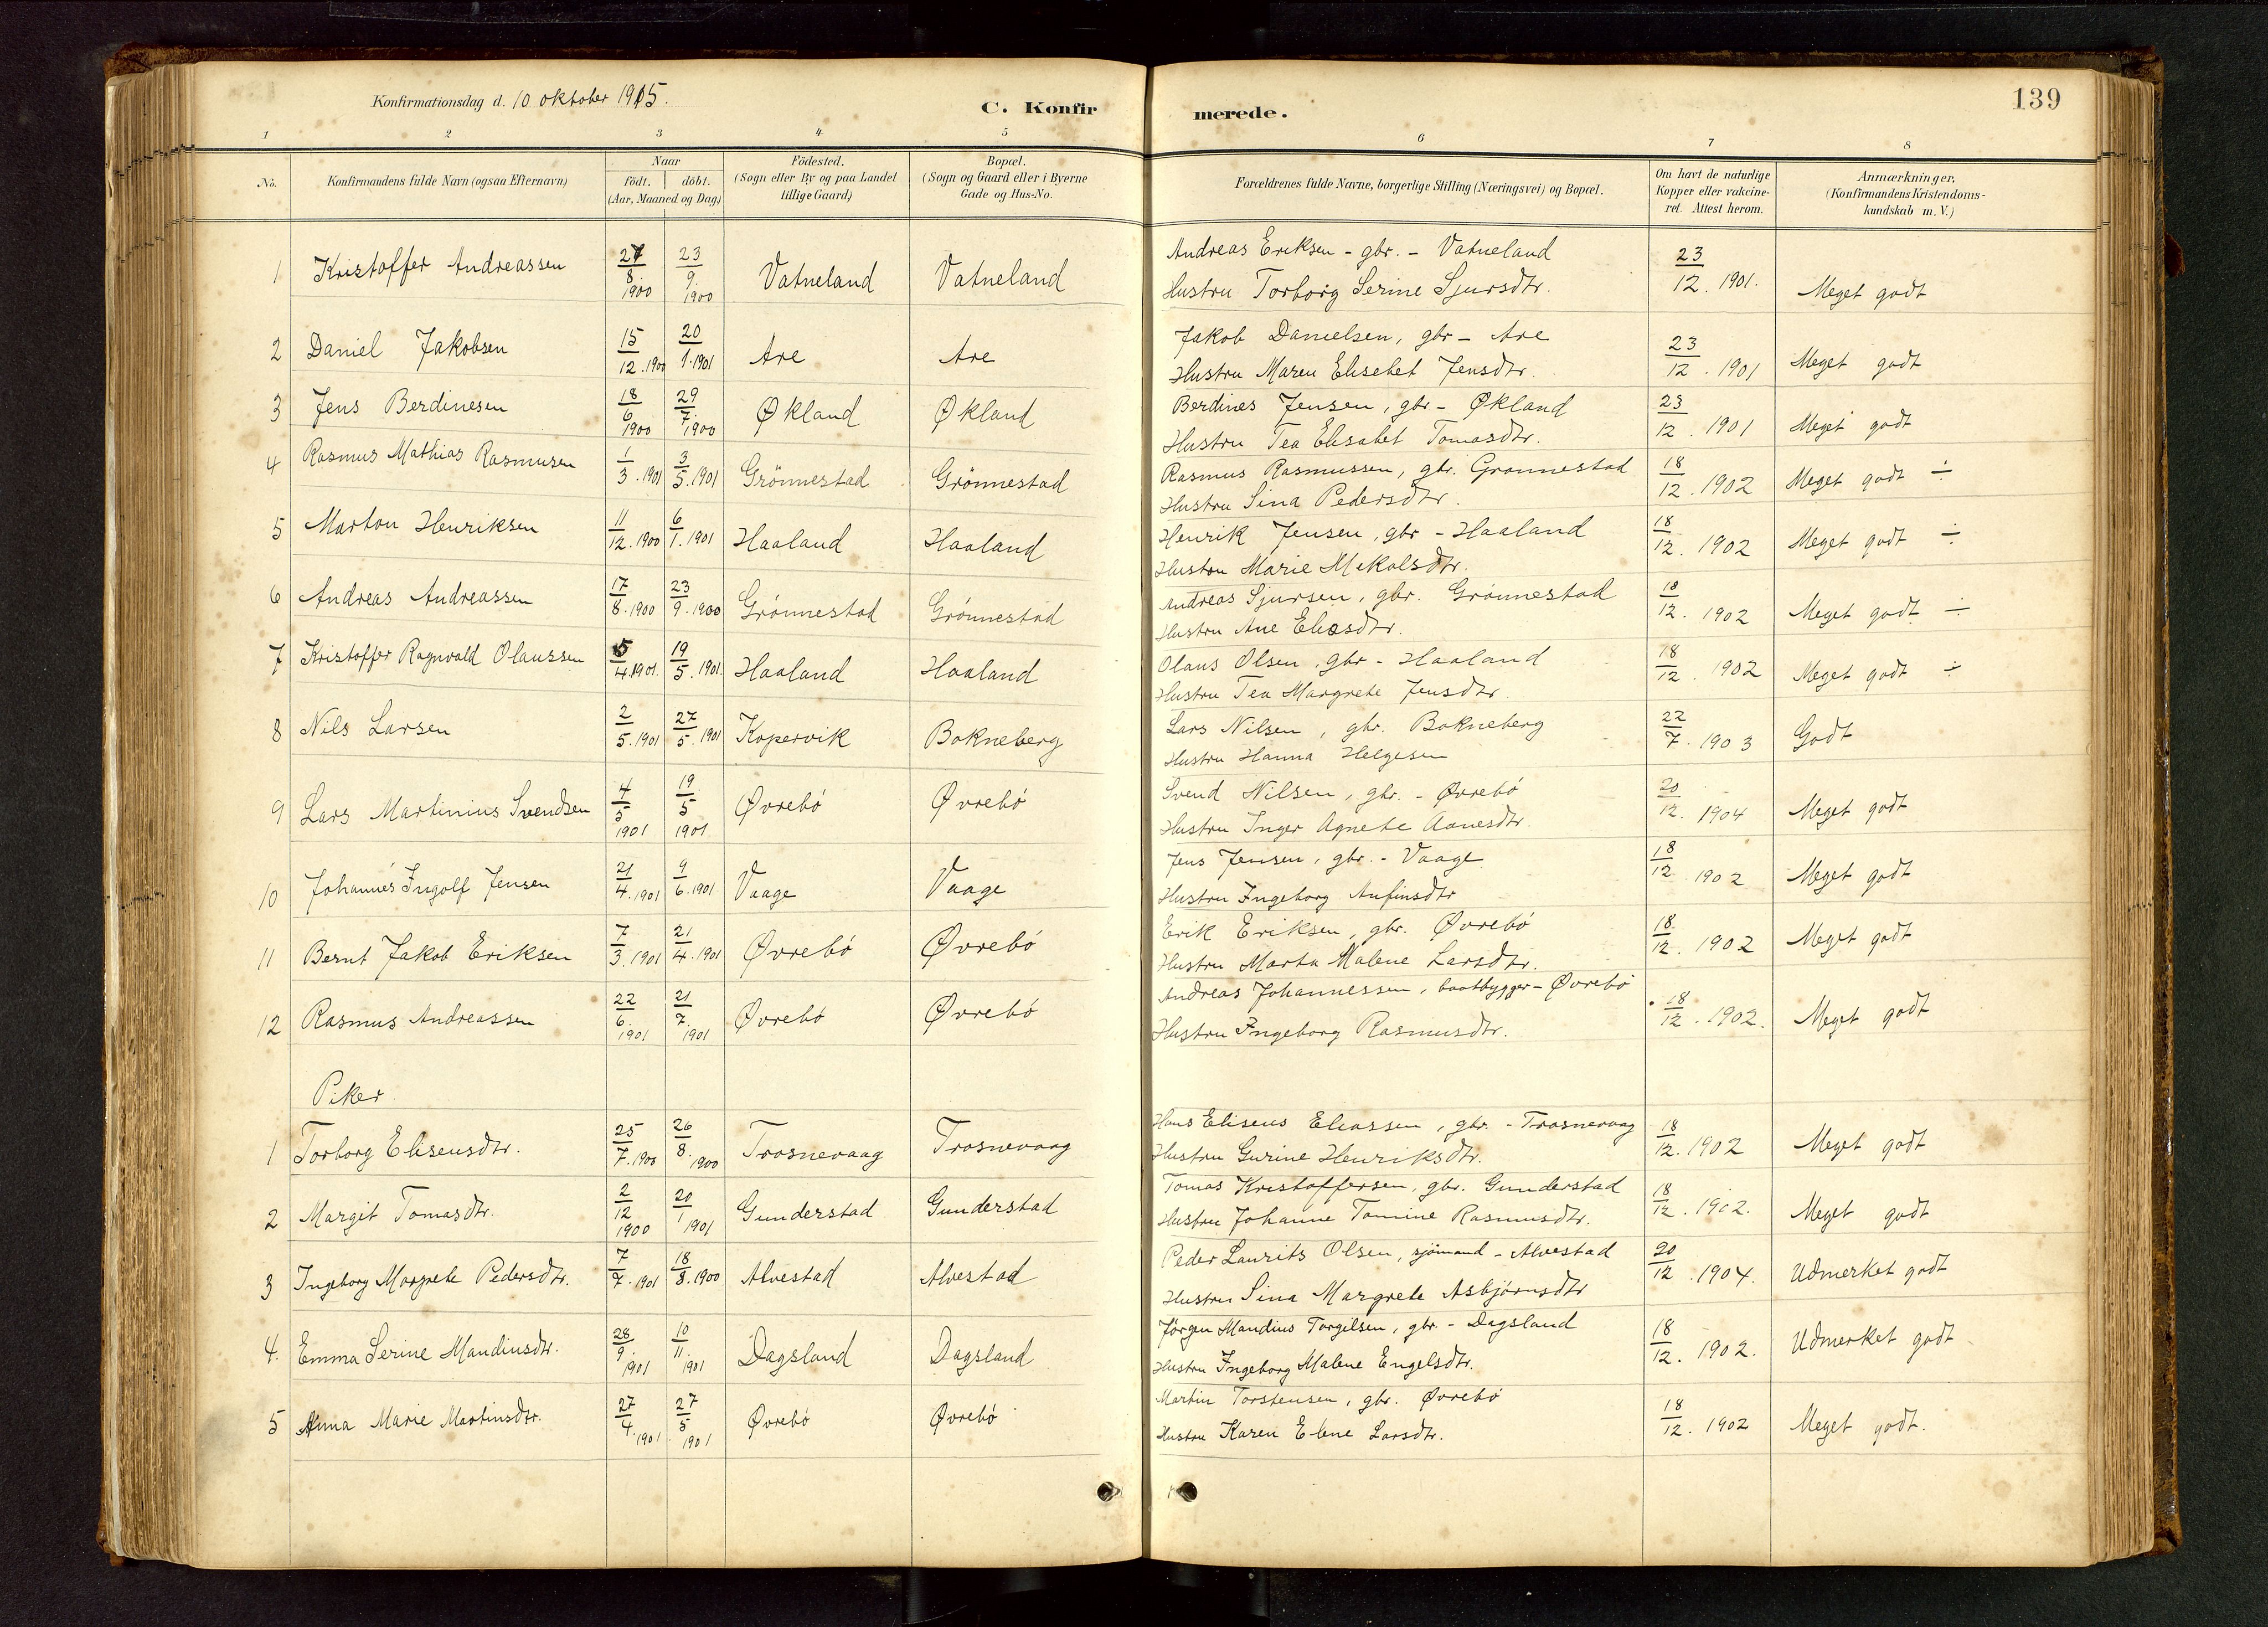 Konfirmationsdag d. 10 oktober 1915.
C. Konfirmerede.
139
1 2 3 4 5 6 7 8
No.
Konfirmandens fulde Navn (ogsaa Efternavn)
Naar
födt. | döbt.
(Aar, Maaned og Dag)
Födested.
(Sogn eller By og paa Landet
tillige Gaard)
Bopæl.
(Sogn og Gaard eller i Byerne
Gade og Hus-No.
Forældrenes fulde Navne, borgerlige Stilling (Næringsvei) og Bopæl.
Om havt de naturlige
Kopper eller vakcine-
ret. Attest herom.
Anmærkninger,
(Konfirmandens Kristendoms-
kundskab m. V.)
1 Kristoffer Andreassen 27/8. 1900 23/9. 1900 Vatneland Vatneland Andreas Eriksen - gbr. - Vatneland 23/12. 1901. Meget godt
Hustru Torborg Serine Sjursdtr.
2 Daniel Jakobsen 15/12. 1900 20/1. 1901 Are Are Jakob Danielsen, gbr - Are 23/12. 1901 Meget godt
Hustru Maren Elisebet Jensdtr.
3 Jens Berdinesen 18/6 1900 29/7. 1900 Økland Økland Berdines Jensen, gbr - Økland 23/12. 1901 Meget godt
Hustru Tea Elisabet Tomasdtr.
4 Rasmus Mathias Rasmusen 1/3. 1901 3/5. 1901 Grönnestad Grönnestad Rasmus Rasmussen, gbr. Grönnestad 18/12. 1902 Meget godt ÷
Hustru Sina Pedersdtr.
5 Marton Henriksen 11/12. 1900 6/1. 1901 Haaland Haaland Henrik Jensen, gbr - Haaland 18/12. 1902 Meget godt ÷
Hustru Marie Mikalsdtr.
6 Andreas Andreassen 17/8. 1900 23/9. 1900 Grönnestad Grönnestad Andreas Sjursen, gbr. Grönnestad 18/12. 1902 Meget godt ÷
Hustru Ane Eliasdtr.
7 Kristoffer Ragnvald Olaussen 5/4. 1901. 19/5. 1901. Haaland Haaland Olaus Olsen, gbr - Haaland 18/12. 1902 Meget godt ÷
Hustru Tea Margrete Jensdtr
8 Nils Larsen 2/5. 1901 27/5. 1901 Kopervik Bokneberg Lars Nilsen, gbr. Bokneberg 22/7. 1903 Godt
Hustru Hanna Helgesen
9 Lars Martinius Svendsen 4/5 1901 19/5 1901 Øvrebö Øvrebö Svend Nilsen, gbr. - Øvrebö 20/12. 1904 Meget godt
Hustru Inger Agnete Aanesdtr.
10 Johannes Ingolf Jensen 21/4. 1901 9/6. 1901. Vaage Vaage Jens Jensen, gbr. - Vaage 18/12 1902 Meget godt
Hustru Ingeborg Anfinsdtr
11 Bernt Jakob Eriksen 7/3. 1901 21/4. 1901 Øvrebö Øvrebö Erik Eriksen, gbr. Øvrebö 18/12. 1902 Meget godt
Hustru Marta Malene Larsdtr.
12 Rasmus Andreassen 22/6. 1901 21/7. 1901 Øvrebö Øvrebö Andreas Johannessen, baatbygger - Øvrebö 18/12. 1902. Meget godt
Hustru Ingeborg Rasmusdtr.
Piker.
1 Torborg Eliseusdtr. 25/7. 1900 26/8. 1900 Trosnevaag Trosnevaag Hans Eliseus Eliassen, gbr. - Trosnevaag 18/12. 1902 Meget godt
Hustru Gurine Henriksdtr.
2 Margit Tomasdtr. 2/12 1900 20/1 1901 Gunderstad Gunderstad Tomas Kristoffersen, gbr. Gunderstad 18/12. 1902. Meget godt
Hustru Johanne Tomine Rasmusdtr.
3 Ingeborg Margrete Pedersdtr. 7/7. 1901 18/8. 1900 Alvestad Alvestad Peder Laurits Olsen, sjömand - Alvestad 20/12. 1904. Udmerket godt
Hustru Sina Margrete Asbjörnsdtr
4. Emma Serine Mandiusdtr. 28/9. 1901 10/11. 1901 Dagsland Dagsland Jörgen Mandius Torgilsen, gbr. - Dagsland 18/12. 1902. Udmerket godt
Hustru Ingeborg Malene Engelsdtr.
5 Anna Marie Martinsdtr. 27/4. 1901. 27/5 1901 Øvrebö Øvrebö Martin Torstensen, gbr. Øvrebö 18/12. 1902 Meget godt.
Hustru Karen Elene Larsdtr.